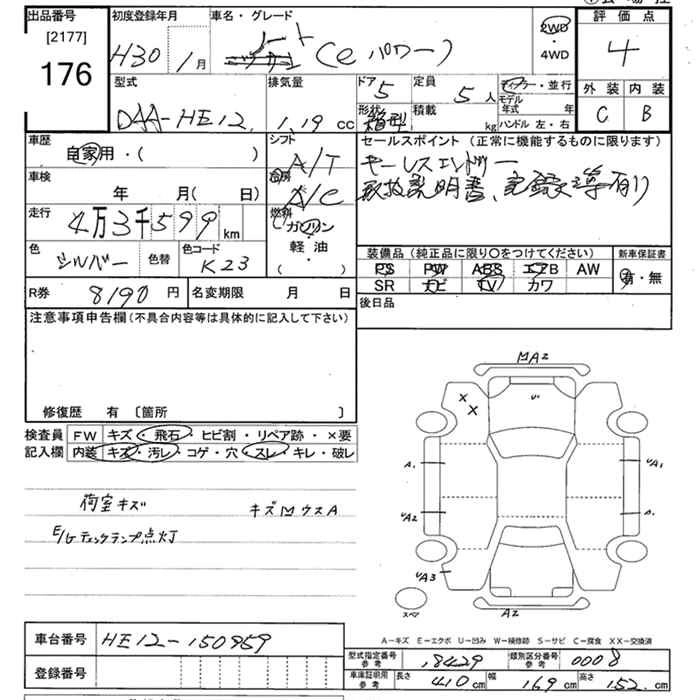 出品番号 初度登録年月 車名・グレード 評価点
[2177]
176 H30 1月 ノート (e パワー) 2WD・4WD 4
型式 排気量 ドア 5 定員 5人 ディーラー・並行 外装 内装
DAA-HE12 1.19 cc 形状 箱型 積載 kg モデル年式 年 C B
ハンドル 左・右
車歴 自家用・( ) シフト A/T セールスポイント (正常に機能するものに限ります)
キーレスエントリー
取扱説明書、記録簿等有り
車検 年 月( 日) 冷房 A/C
走行 4万3千599km 燃料 ガソリン
軽油
( )
色 シルバー 色替 色コード K23
装備品 (純正品に限り○をつけてください) 新車保証書
PS PW ABS エアB AW 有・無
SR ナビ TV カワ
R券 8190円 名変期限 月 日 後日品
注意事項申告欄(不具合内容等は具体的に記入して下さい)
修復歴 有 〔箇所 〕
検査員 FW キズ・飛石・ヒビ割・リペア跡・×要
記入欄 内装 キズ・汚レ・コゲ・穴・スレ・キレ・破レ
荷室キズ キズMウスA
E/Gチェックランプ点灯
MA2
X
X
U
A1 UA1
UA2 A1
UA3
スペア A2
A-キズ E-エクボ U-凹み W-補修跡 S-サビ C-腐食 XX-交換済
車台番号 HE12-150959
型式指定番号 参考 18429 類別区分番号 参考 0008
登録番号 車庫証明用 参考 長さ 410cm 幅 169cm 高さ 152cm